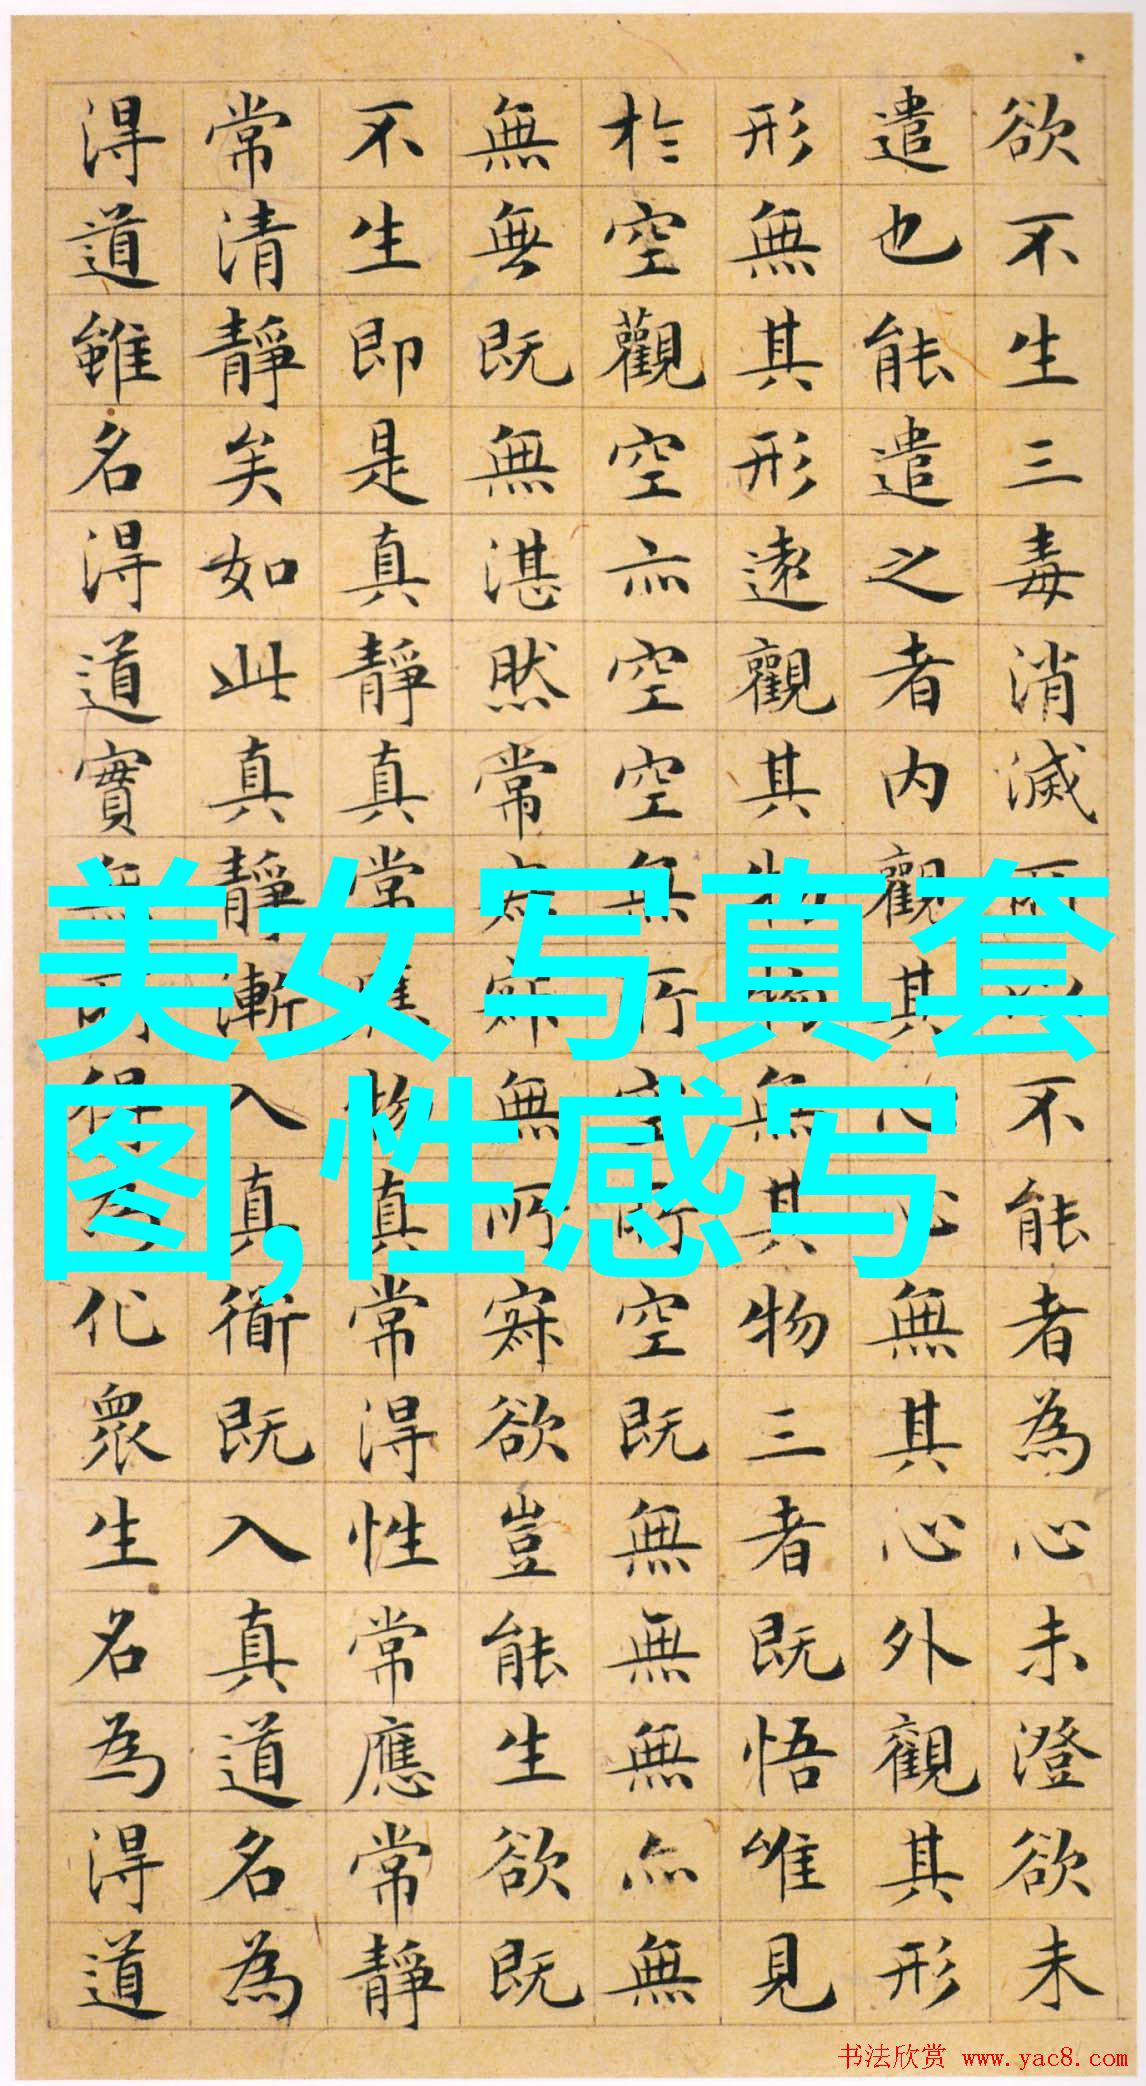 欲不生三毒消滅所以不能者為心未澄欲未
遣也能遣之者內觀其心心無其心外觀其形
形無其形遠觀其物物無其物三者既悟唯見
於空觀空亦空空無所空所空既無無無亦無
無無既無湛然常寂寂無所寂欲豈能生欲既
不生即是真靜真常應物真常得性常應常靜
常清靜矣如此真靜漸入真衜既入真道名為
得道雖名得道實無所得為化眾生名為得道
美女写真套
图,性感写
书法欣赏 www.yac8.com